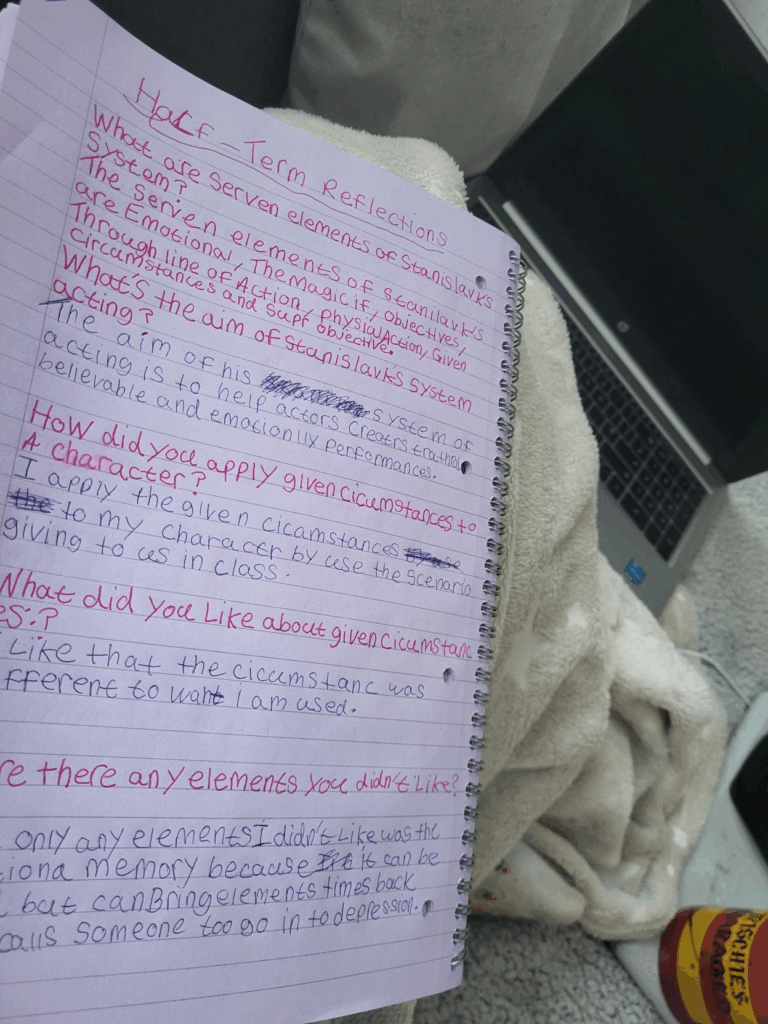 Half-Term Reflections
What are Serven elements of Stanislavks
System?
The Serven elements of Stanilavks
are Emotional, The Magic if, Objectives,
Through line of Action, PhysialAction, Given
Circamstances and Supf objective.
What's the aim of Stanislavk's System
acting?
The aim of his system of
acting is to help actors Creatrs
believable and emotionlly performances.
How did you apply given Cicumstances to
A character?
I apply the given cicamstances
to my character by use the Scenario
giving to us in class.
What did you Like about given Cicumstanc
es:?
Like that the cicumstanc was
fferent to waht I am used.
re there any elements you didn't Like?
only any elements I didn't Like was the
iona memory because it can be
but can Bring elements times back
calls Someone too go in to depression.